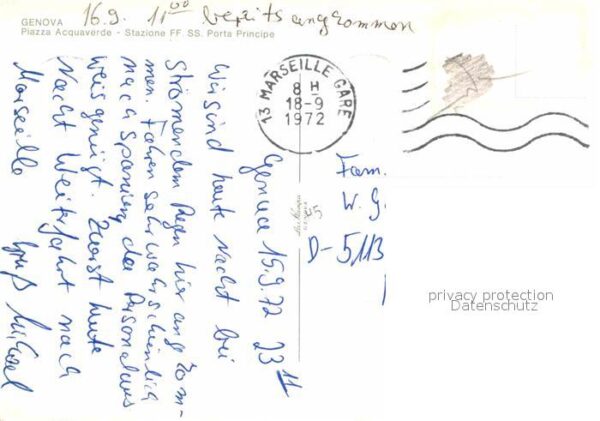 16.9. 11⁰⁰ bereits angekommen
GENOVA
Piazza Acquaverde - Stazione FF. SS. Porta Principe
13 MARSEILLE GARE
8 H
18-9
1972
Genua 15.9.72 23
Wir sind heute Nacht bei
strömendem Regen hier angekom-
men. Fahren sehr wahrscheinlich
nach Spanien, da Personalaus
weis genügt. Zuerst heute
Nacht Weiterfahrt nach
Marseille Gruß Michael
Fam.
W. G.
D-5113
privacy protection
Datenschutz